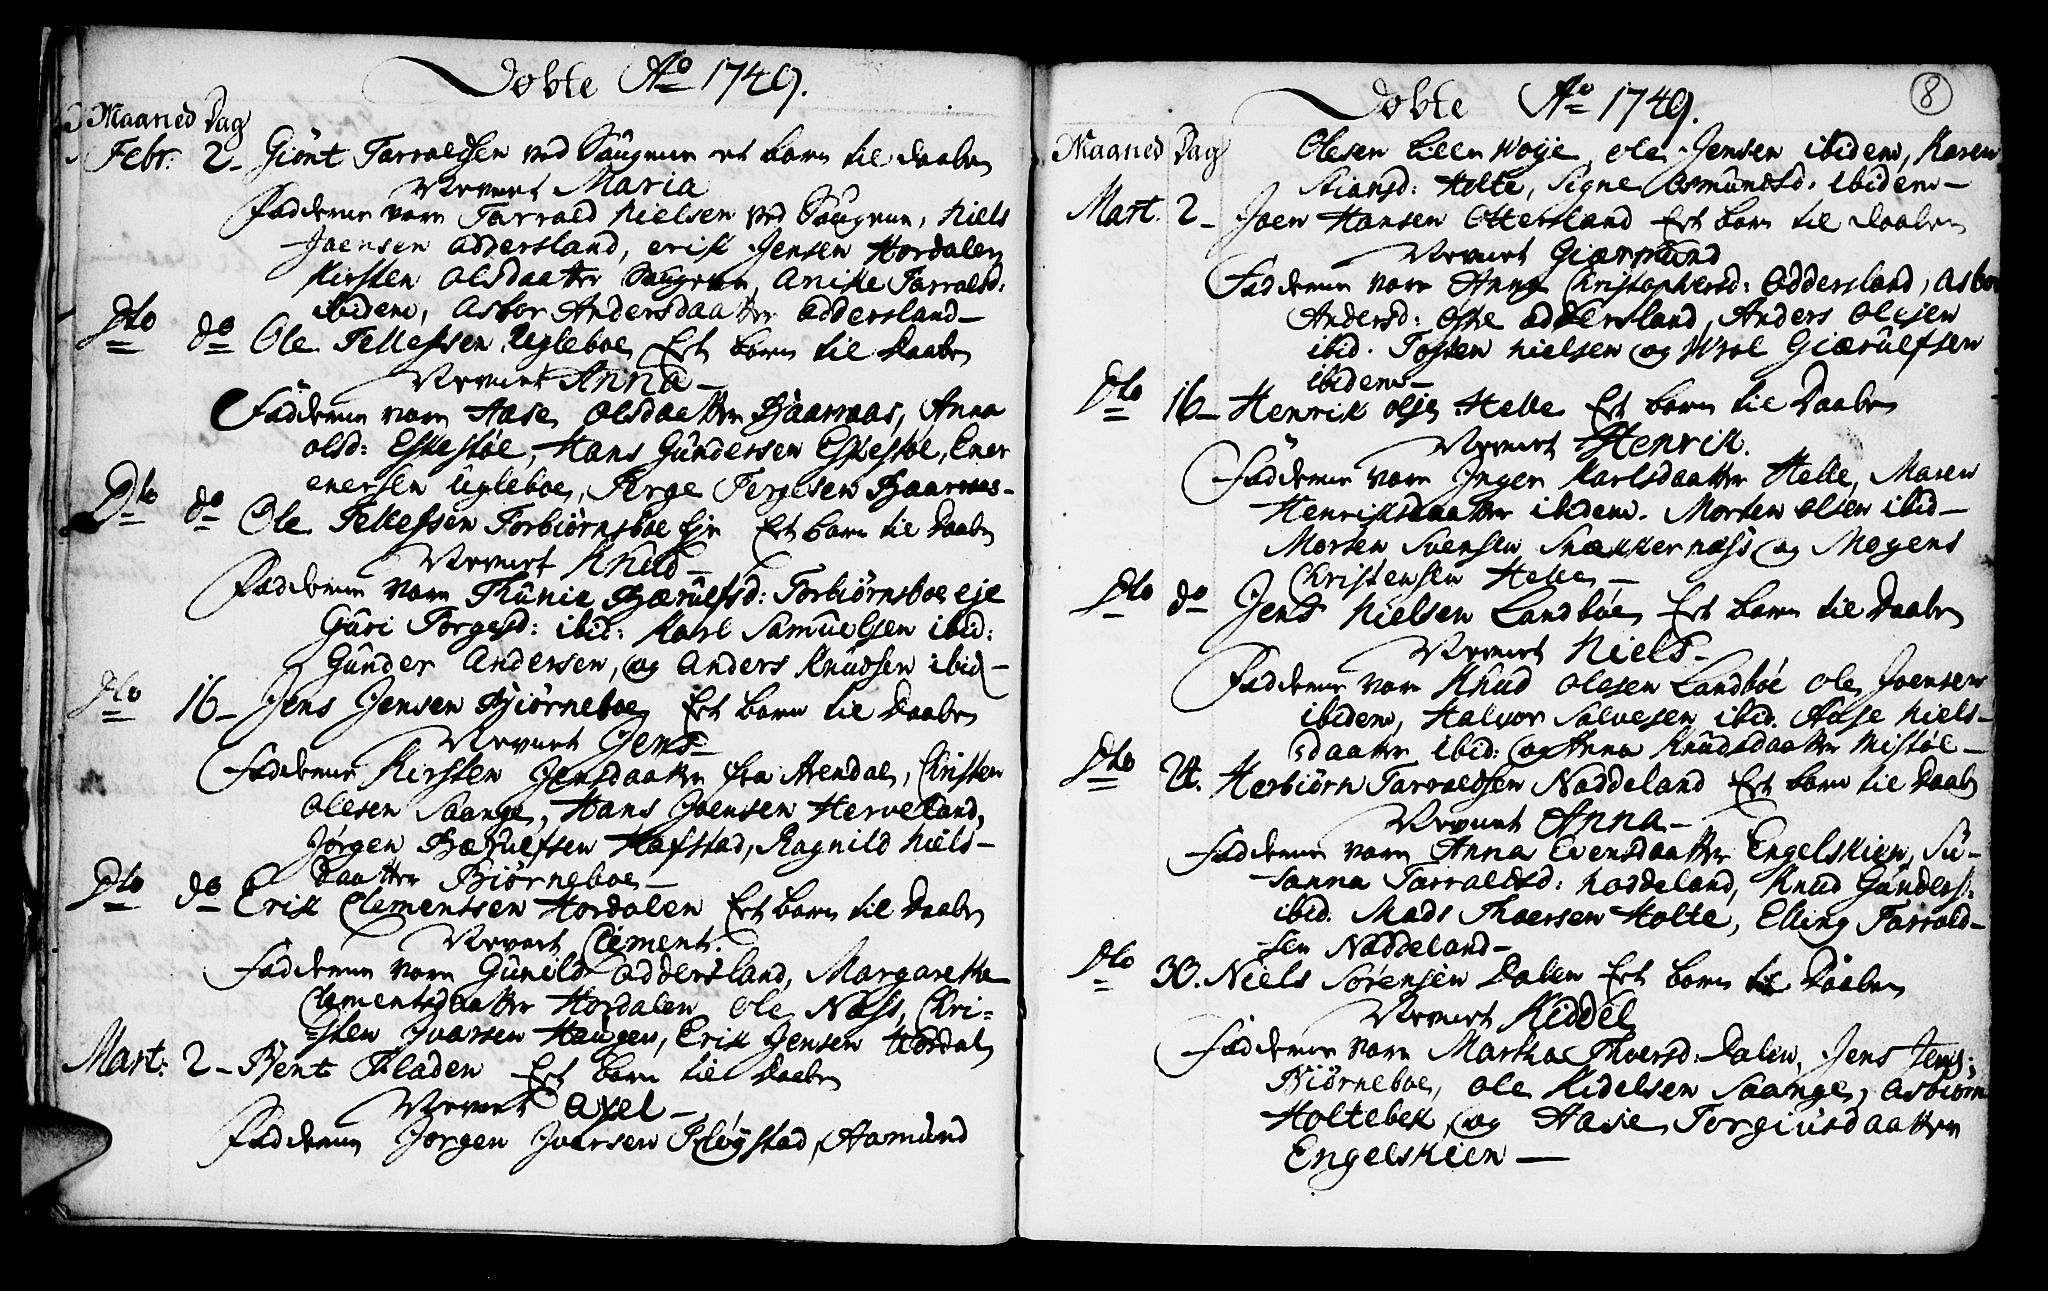 Döbte Ao 1749.
Maaned Dag
Febr: 2- Giönt Tarroldsen ved Saugene et barn til daaben
Nevnet Maria
Fadderne vare Tarrald Nielsen ved Saugene, Niels
Joensen oddersland, erik Jensen Hordalen
Kirsten olsdaatter Saugene, Anike Tarralsd:
ibidem, Asbor Andersdaatter oddersland-
Dto do Ole Tellefssen Ugleboe Et barn til Daaben
Nevnet Anna-
Fadderne vare Aase olsdaatter Baarnaas, Anna
olsd: Eskestøe, Hans Gündersen Eskestøe, Ener
enersen ugleboe, Terge Tergesen Baarnaas-
Dto do Ole Tellefssen Torbiørnsboe Eje Et barn til Daaben
Nevnet Knud-
Fadderne vare Thunie Bærulfsd: Torbiørnsboe eje
Guri Torgesd: ibid: Karl Samuelsen ibid:
Gunder Andersen, og Anders Knudsen ibid-
Dto 16- Jens Jensen Biörneboe Et barn til Daaben
Nevnet Jens-
Fadderne Kirsten Jensdaatter fra Arendal, Christen
olesen Saange, Hans Joensen Herveland,
Jørgen Bærulfsen Hafstad, Ragnild Niels-
Daatter Biørneboe-
Dto do Erik Clementsen Hordalen Et barn til Daaben
Nevnet Clement.
Fadderne vare Gunild oddersland, Margaretha
Clementsdaatter Hordalen ole Næss, Chri=
=sten Ivarsen Haugen, Erik Jensen Hordal
Mart: 2- Bent Bladen Et barn til Daaben
Nevnet axel-
Fadderne Jorgen Iversen Fløystad, Aamund
8
Döbte Ao 1749.
Maaned Dag
Olesen Lille Woje, ole Jensen ibidem, Karen
Stiansd: Holte, Signe Osmundsd: ibidem-
Mart. 2- Joen Hansen Ottersland Et barn til Daaben
Nevnet Giærmund
Fadderne vare Anna Christophersd: oddersland, Asbor
Andersd: oddersland, Anders Olesen
ibid. Tosten Nielsen og Giærulfsen
ibidem-
Dto 16- Henrik olse Helle Et barn til Daaben
Nevnet Henrik.
Fadderne vare Inger Karlsdaatter Helle, Maren
Henriksdaatter ibidem. Morten olsen ibid-
Morten Svensen Snekkernæss og Mogens
Christensen Helle-
Dto do Jens Nielsen Landbøe Et barn til Daaben
Nevnet Niels-
Fadderne vare Knud olesen Landbøe ole Joensen
ibidem, Halvor Salvesen ibid. Aase Niels-
sdaatter ibid: og Anna Knudsdaatter Mistøl-
Dto 24. Herbiörn Tarraldsen Naddeland Et barn til Daab
Nevnet Anna-
Fadderne vare Anna Evensdaatter Engelskien, Su-
-sanna Tarraldsd: Naddeland, Knud Gunders:
ibid. Mads Thoersen Holte, Elling Tarrald-
-sen Naddeland-
Dto 30. Niels Sørensen Dalen Et barn til Daaben
Nevnet Kiddel
Fadderne vare Martha Thoersd: Dalen, Jens Jens:
Biørneboe, ole Kidelsen Saange, Asbiørn
Holtebek, og Aase Torgiusdaatter
Engelskien-